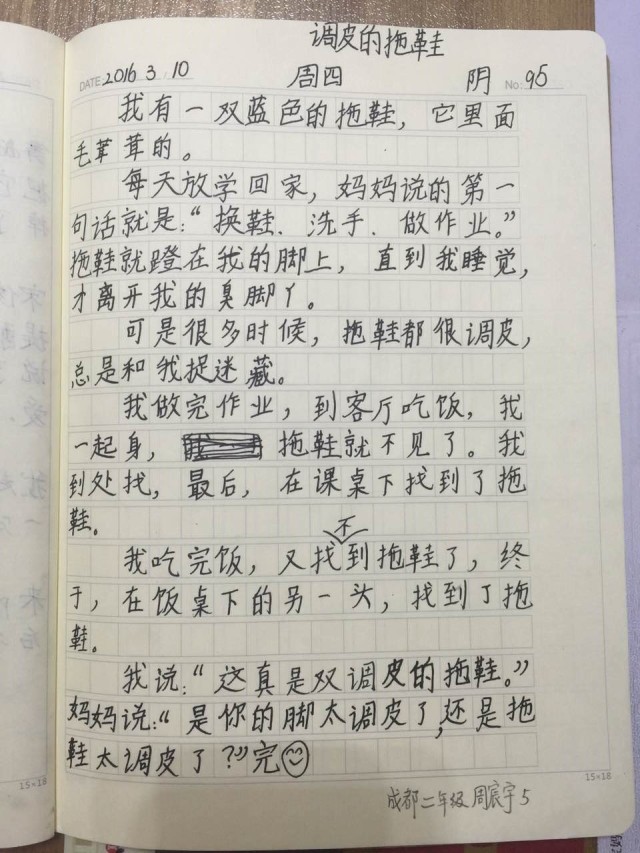 调皮的拖鞋
DATE 2016 3. 10 周四 阴 No: 95
我有一双蓝色的拖鞋，它里面
毛茸茸的。
每天放学回家，妈妈说的第一
句话就是：“换鞋、洗手、做作业。”
拖鞋就蹬在我的脚上，直到我睡觉，
才离开我的臭脚丫。
可是很多时候，拖鞋都很调皮，
总是和我捉迷藏。
我做完作业，到客厅吃饭，我
一起身，拖鞋就不见了。我
到处找，最后，在课桌下找到了拖
鞋。
我吃完饭，又找不到拖鞋了，终
于，在饭桌下的另一头，找到了拖
鞋。
我说：“这真是双调皮的拖鞋。”
妈妈说：“是你的脚太调皮了，还是拖
鞋太调皮了？”完
15×18 15×18
成都二年级 周宸宇 5